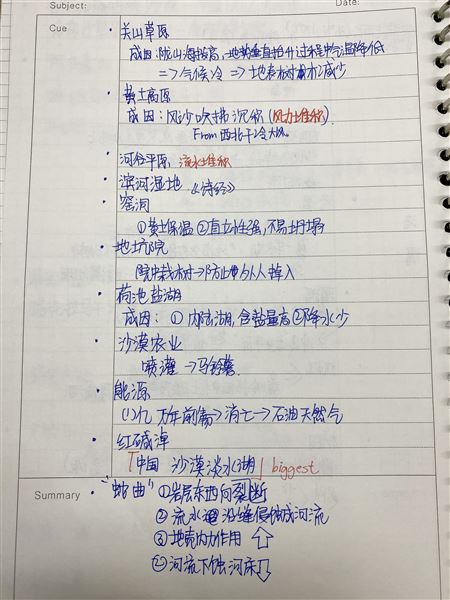 Subject:
Date:
Cue
· 关山草原
成因：陇山海拔高，地势垂直抬升过程中气温降低
=> 气候冷 => 地表树木减少
· 黄土高原
成因：风沙吹拂沉积（风力堆积）
From 西北干冷大风。
· 河谷平原 流水堆积
· 滨河湿地 《诗经》
· 窑洞
①黄土保温 ②直立性强，不易坍塌
· 地坑院
院中栽树→防止地外人掉入
· 荷池盐湖
成因：① 内陆湖，含盐量高 ②降水少
· 沙漠农业
喷灌 → 马铃薯
· 能源
万年前 → 消亡 → 石油天然气
· 红碱淖
「中国 沙漠淡水湖」biggest
Summary
· "蛇曲" ①岩层东西向裂断
② 流水 沿缝侵蚀成河流
③ 地壳内力作用 ⇧
② 河流下蚀河床 ⇩